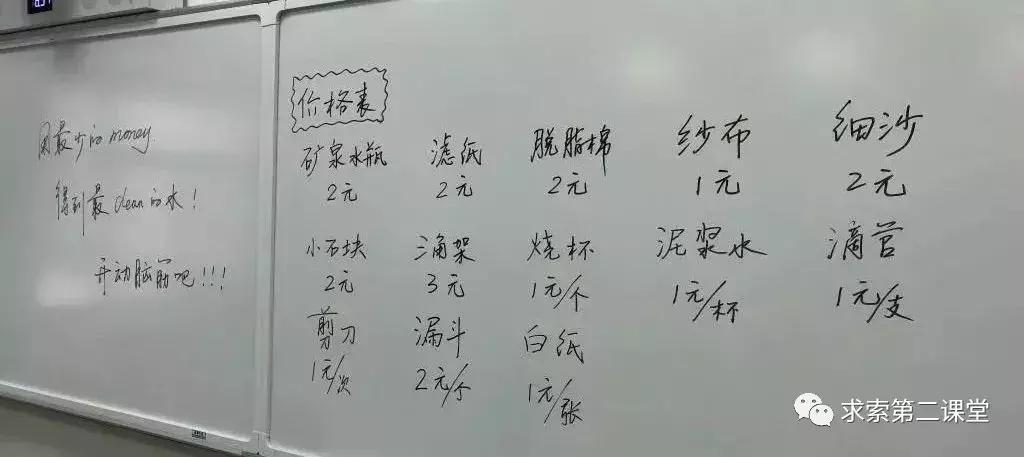 用最少的money
得到最clean的水！
开动脑筋吧！！！
价格表
矿泉水瓶 滤纸 脱脂棉 纱布 细沙
2元 2元 2元 1元 2元
小石块 三角架 烧杯 泥浆水 滴管
2元 3元 1元/个 1元/杯 1元/支
剪刀 漏斗 白纸
1元/次 2元/个 1元/张
求索第二课堂